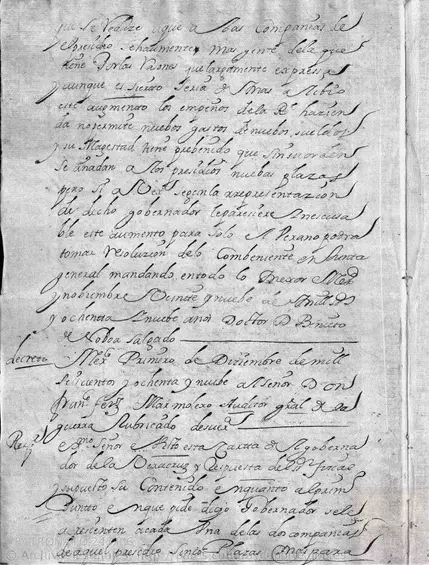 que se reduze a que a las companias de
el presidio se haumente mas gente de la que
tiene por las razones que largamente expressa
y aunque es sierto seria de mas alibio
este augmento los empeños de la Rl hazien
da no permite nuebos gastos de nuebos sueldos
y su Magestad tiene prebenido que sin su orden
se añadan a los presidios nuebas plazas
pero si a Vexa segun la rrepresentazion
de dicho gobernador le paresiere inescusa
ble este aumento para solo el Verano podra
tomar resoluzion de lo combeniente en Junta
general mandando en todo lo mexor Mexco
y nobiembre Veinte y nuebe de mill Ss
y ochenta y nuebe años Doctor D Benito
de Noboa Salgado
decreto Mexco Primero de Diziembre de mill
seiscientos y ochenta y nuebe al Señor Don
Franco Ferz Marmolexo Auditor gral de la
guerra Rubricado de su exa
Respta exmo Señor e Visto esta carta de el goberna
dor de la Veracruz y Respuesta del Sr fiscal
y supuesto su Contenido en quanto al prim
Punto en que pide dicho Gobernador se le
acresienten a cada una de las dos companias
de aquel presidio sinco Plazas mas para